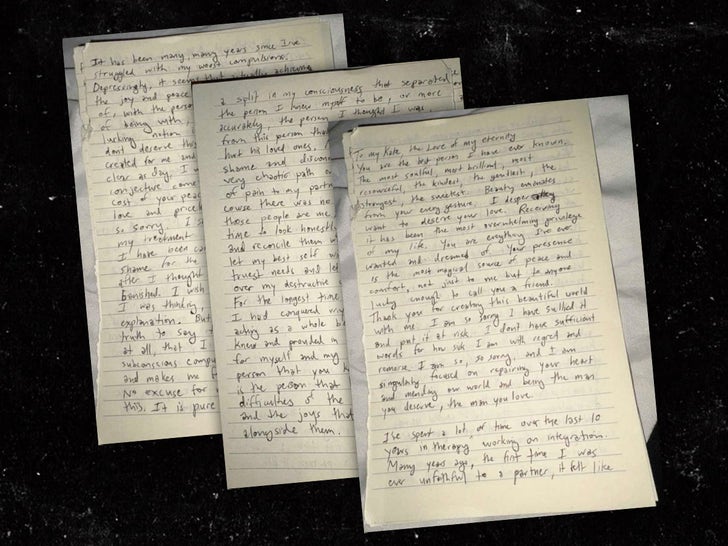 To my Kate, the Love of my eternity
You are the best person I have ever known.
The most soulful, most brilliant, most
resourceful, the kindest, the gentlest, the
strongest, the sweetest. Beauty emanates
from your every gesture. I desperately
want to deserve your love. Receiving
it has been the most overwhelming privilege
of my life. You are everything I've ever
wanted and dreamed of. Your presence
is the most magical source of peace and
comfort, not just to me but to anyone
lucky enough to call you a friend.
Thank you for creating this beautiful world
with me. I am so sorry I have sullied it
and put it at risk. I don't have sufficient
words for how sick I am with regret and
remorse. I am so, so sorry, and I am
singularly focused on repairing your heart
and mending our world and being the man
you deserve, the man you love.
I've spent a lot of time over the last 10
years in therapy working on integration.
Many years ago, the first time I was
ever unfaithful to a partner, it felt like
a split in my consciousness that separated
the person I knew myself to be, or more
accurately, the person I thought I was,
from this person that
hurt his loved ones.
shame and
very chaotic path
of pain to my
course there was no
those people are me.
time to look honestly
and reconcile them
let my best self
truest needs and let
over my destructive
For the longest time
I had conquered my
acting as a whole
knew and provided
for myself and my
person that you
is the person that
difficulties of the
and the joys that
alongside them.
It has been many, many years since I've
struggled with my worst compulsions.
Depressingly, it seems that actually achieving
the joy and peace
of, with the person
of being with,
lurking notion
don't deserve this
created for me and
clear as day. I
conjecture
cost of your peace
love and
so sorry. I
my treatment
I have been
shame for the
after I thought
banished. I wish
I was thinking,
explanation. But
truth to say
at all, that I
subconscious
and makes me
No excuse for
this. It is pure